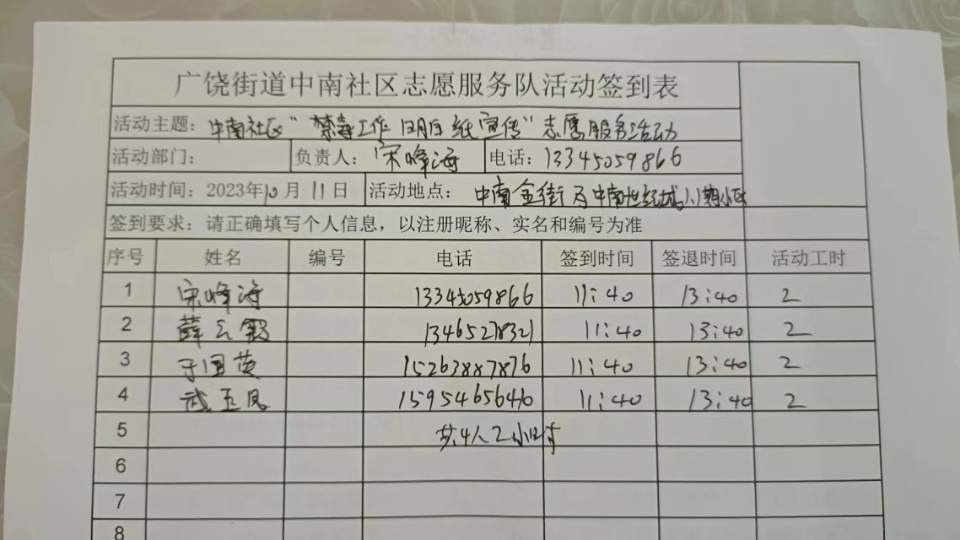 广饶街道中南社区志愿服务队活动签到表
活动主题：中南社区"禁毒工作明白纸宣传"志愿服务活动
活动部门： 负责人：宋峰海 电话：13345059866
活动时间：2023年10月11日 活动地点：中南金街及中南世纪城小区
签到要求：请正确填写个人信息，以注册昵称、实名和编号为准
序号 姓名 编号 电话 签到时间 签退时间 活动工时
1 宋峰海 13345059866 11:40 13:40 2
2 薛 13465278321 11:40 13:40 2
3 于国英 15263887876 11:40 13:40 2
4 武玉 15954656410 11:40 13:40 2
5 共4人2小时
6
7
8